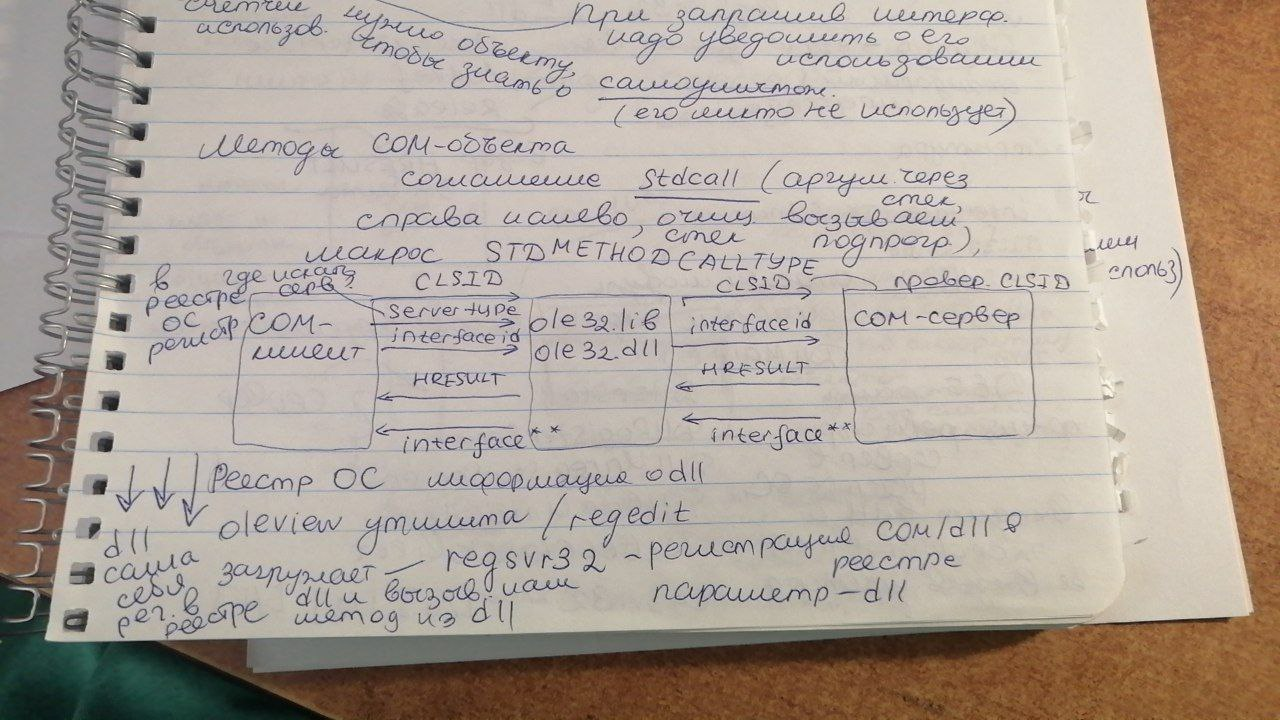 счетчик нужно объекту,
использов. чтобы знать о
При запрашив интерф.
надо уведомить о его
использовании
самоуничтож.
(его никто не использует)
Методы COM-объекта
соглашение stdcall (аргум. через
стек,
справа налево, очищ вызываем
стек подпрогр.),
макрос STDMETHODCALLTYPE
в
реестре
ОС
регистр
где искать
серв?
COM-
клиент
CLSID
Servertype
interfaceid
HRESULT
interface**
ole32.lib
ole32.dll
CLSID
interfaceid
HRESULT
interface**
провер. CLSID
COM-сервер
спольз)
Реестр ОС информация о dll
oleview утилита / regedit
dll
сама
себя
рег. в
реестре
загружает
dll и вызыв. нам
метод из dll
regsvr32 – регистрация COM/dll в
реестре
параметр – dll